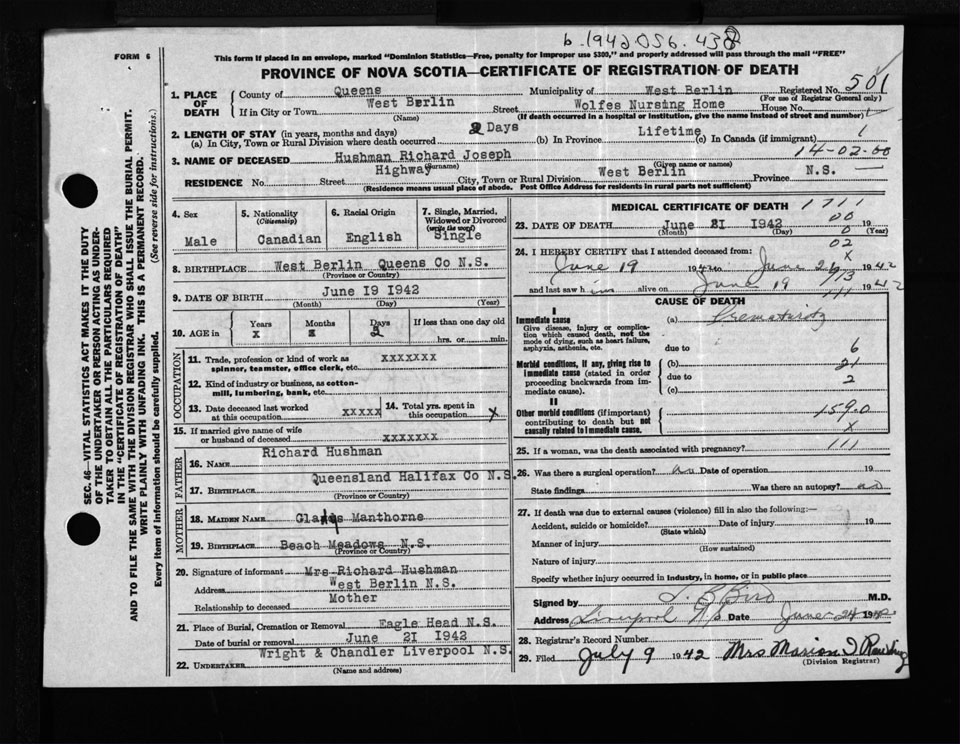 b. 1942 056. 438
FORM 6
This form if placed in an envelope, marked "Dominion Statistics—Free, penalty for improper use $300," and properly addressed will pass through the mail "FREE"
PROVINCE OF NOVA SCOTIA—CERTIFICATE OF REGISTRATION OF DEATH
501
1. PLACE OF DEATH
County of Queens Municipality of West Berlin Registered No.
(For use of Registrar General only)
If in City or Town West Berlin Street Wolfes Nursing Home House No.
(Name) (If death occurred in a hospital or institution, give the name instead of street and number)
2. LENGTH OF STAY (in years, months and days)
(a) In City, Town or Rural Division where death occurred 2 Days (b) In Province Lifetime (c) In Canada (if immigrant)
14-02-00
3. NAME OF DECEASED Hushman Richard Joseph
(Surname) (Given name or names)
RESIDENCE No. Street Highway City, Town or Rural Division West Berlin Province N.S.
(Residence means usual place of abode. Post Office Address for residents in rural parts not sufficient)
4. Sex Male
5. Nationality (Citizenship) Canadian
6. Racial Origin English
7. Single, Married, Widowed or Divorced (write the word) Single
8. BIRTHPLACE West Berlin Queens Co N.S.
(Province or Country)
9. DATE OF BIRTH June 19 1942
(Month) (Day) (Year)
10. AGE in Years x Months x Days 2 If less than one day old hrs. or min.
OCCUPATION
11. Trade, profession or kind of work as spinner, teamster, office clerk, etc. xxxxxxx
12. Kind of industry or business, as cotton-mill, lumbering, bank, etc.
13. Date deceased last worked at this occupation xxxxx
14. Total yrs. spent in this occupation x
15. If married give name of wife or husband of deceased xxxxxxx
FATHER
16. NAME Richard Hushman
17. BIRTHPLACE Queensland Halifax Co N.S.
(Province or Country)
MOTHER
18. MAIDEN NAME Manthorne
19. BIRTHPLACE Beach Meadows N.S.
(Province or Country)
20. Signature of informant Mrs Richard Hushman
Address West Berlin N.S.
Relationship to deceased Mother
21. Place of Burial, Cremation or Removal Eagle Head N.S.
Date of burial or removal June 21 1942
22. UNDERTAKER Wright & Chandler Liverpool N.S.
(Name and address)
MEDICAL CERTIFICATE OF DEATH 1711
00
23. DATE OF DEATH June 21 1942 19
(Month) (Day) (Year)
0
02
24. I HEREBY CERTIFY that I attended deceased from: x
June 19 1942 to June 19 42
and last saw him alive on June 19 1942
111
CAUSE OF DEATH
I
Immediate cause (a) Prematurity
Give disease, injury or complication which caused death, not the mode of dying, such as heart failure, asphyxia, asthenia, etc.
due to 6
Morbid conditions, if any, giving rise to immediate cause (stated in order proceeding backwards from immediate cause).
(b) 21
due to 2
(c)
II
Other morbid conditions (if important) contributing to death but not causally related to immediate cause.
159-0
x
25. If a woman, was the death associated with pregnancy? 111
26. Was there a surgical operation? no Date of operation 19
State findings Was there an autopsy? no
27. If death was due to external causes (violence) fill in also the following:—
Accident, suicide or homicide? Date of injury 19
(State which)
Manner of injury
(How sustained)
Nature of injury
Specify whether injury occurred in industry, in home, or in public place
Signed by M.D.
Address Liverpool N.S. Date June 24 1942
28. Registrar's Record Number
29. Filed July 9 1942 Mrs Marion
(Division Registrar)
SEC. 46—VITAL STATISTICS ACT MAKES IT THE DUTY
OF THE UNDERTAKER OR PERSON ACTING AS UNDER-
TAKER TO OBTAIN ALL THE PARTICULARS REQUIRED
IN THE "CERTIFICATE OF REGISTRATION OF DEATH"
AND TO FILE THE SAME WITH THE DIVISION REGISTRAR WHO SHALL ISSUE THE BURIAL PERMIT.
WRITE PLAINLY WITH UNFADING INK. THIS IS A PERMANENT RECORD.
Every item of information should be carefully supplied. (See reverse side for instructions.)